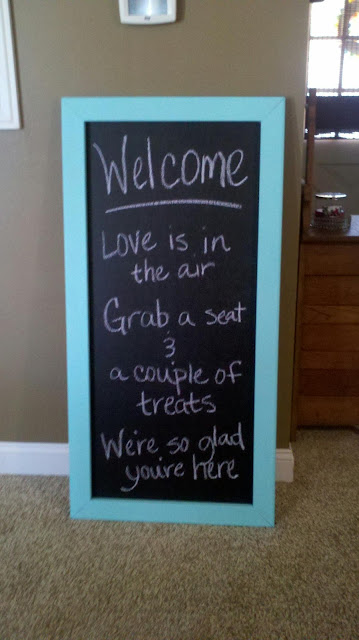 Welcome
Love is in
the air
Grab a seat
&
a couple of
treats
We're so glad
you're here